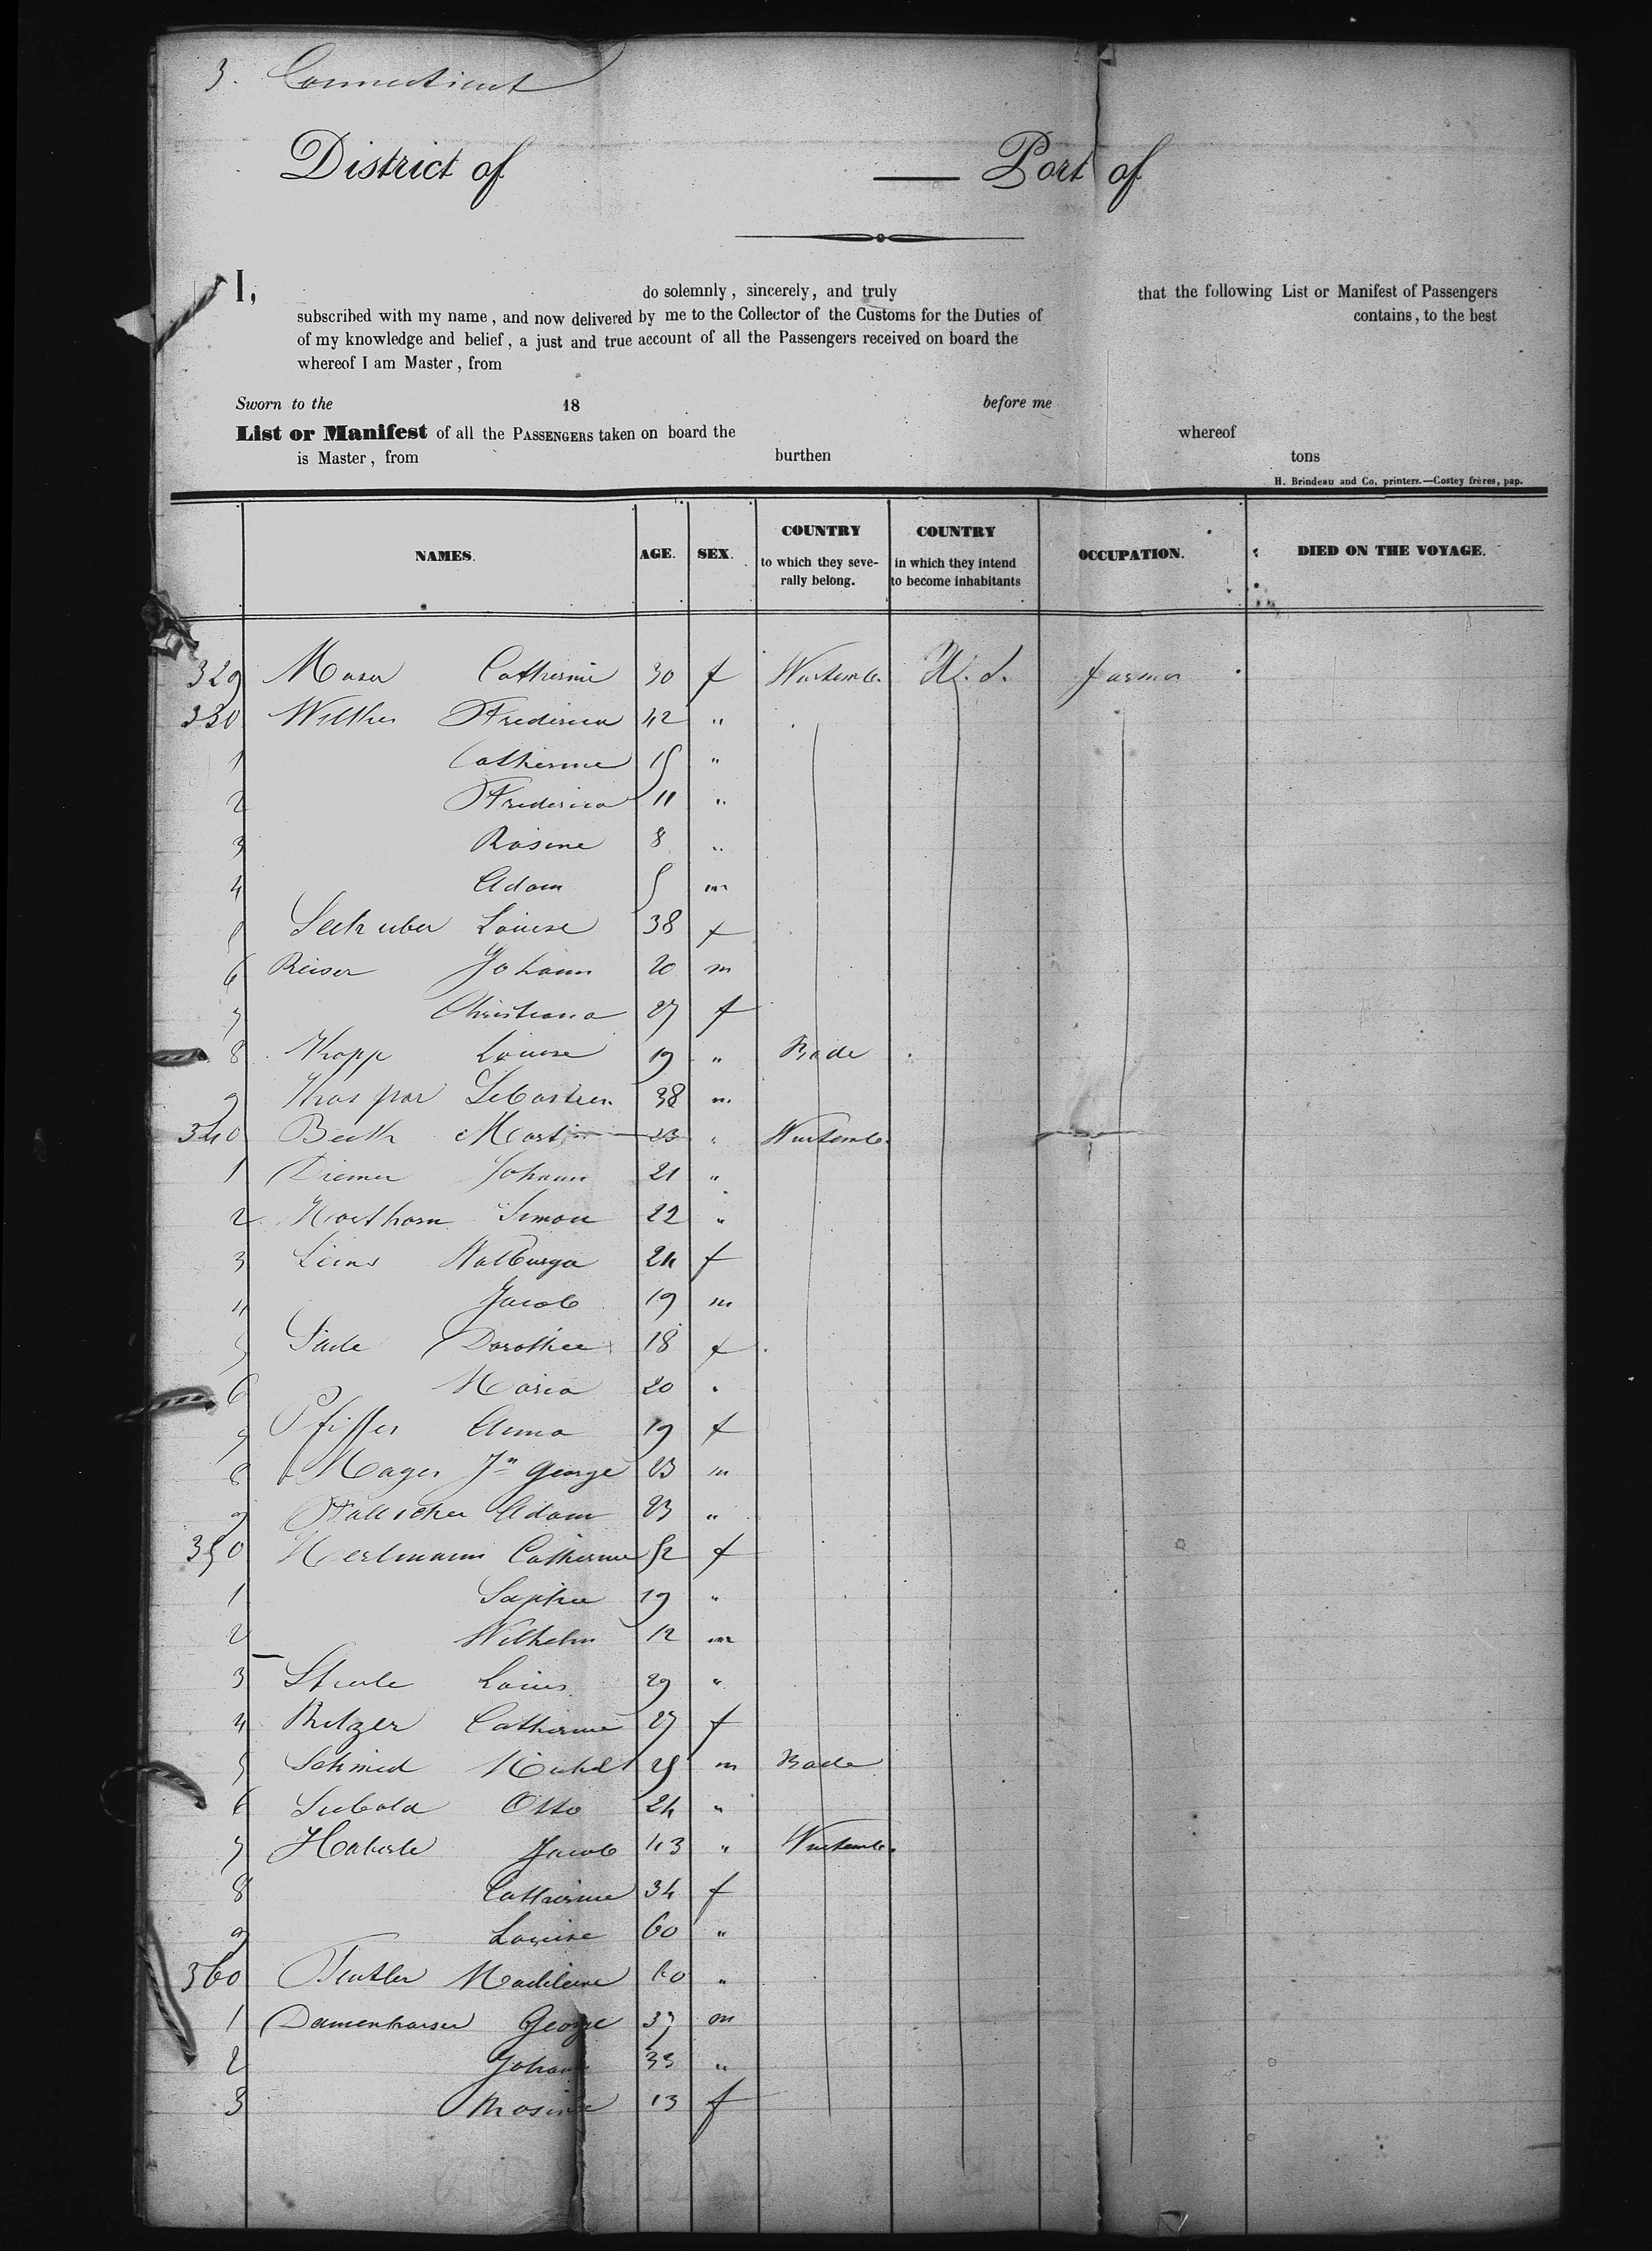 3. Connecticut
District of — Port of
I, do solemnly, sincerely, and truly that the following List or Manifest of Passengers
subscribed with my name, and now delivered by me to the Collector of the Customs for the Duties of contains, to the best
of my knowledge and belief, a just and true account of all the Passengers received on board the
whereof I am Master, from
Sworn to the 18 before me
List or Manifest of all the PASSENGERS taken on board the whereof
is Master, from burthen tons
H. Brindeau and Co. printers.—Costey frères, pap.
NAMES. AGE. SEX. COUNTRY to which they severally belong. COUNTRY in which they intend to become inhabitants OCCUPATION. DIED ON THE VOYAGE.
329 Maser Catherine 30 f Wurtemb. U. S. farmer
330 Frederica 42 "
1 Catherine 15 "
2 Frederica 11 "
3 Rosine 8 "
4 Adam 5 m
5 Louise 38 f
6 Reiser Johann 20 m
7 Christiana 27 f
8 Kopp Louise 19 " Bade
9 Kaspar Sebastien 38 m
340 Beith Martin 23 " Wurtemb.
1 Diemer Johann 21 "
2 Simon 22 "
3 Leins Walburga 24 f
4 Jacob 19 m
5 Dorothee 18 f
6 Maria 20 "
7 Pfiffer Anna 19 f
8 Mager Jn George 23 m
9 Adam 23 "
350 Catherine 52 f
1 Sophie 19 "
2 Wilhelm 12 m
3 Louis 29 "
4 Catherine 27 f
5 Schmid Michel 25 m Bade
6 Seebold Otto 24 "
7 Haberle Jacob 43 " Wurtemb.
8 Catherine 34 f
9 Louise 60 "
360 Madeleine 60 "
1 George 37 m
2 Johann 33 "
3 Rosine 13 f